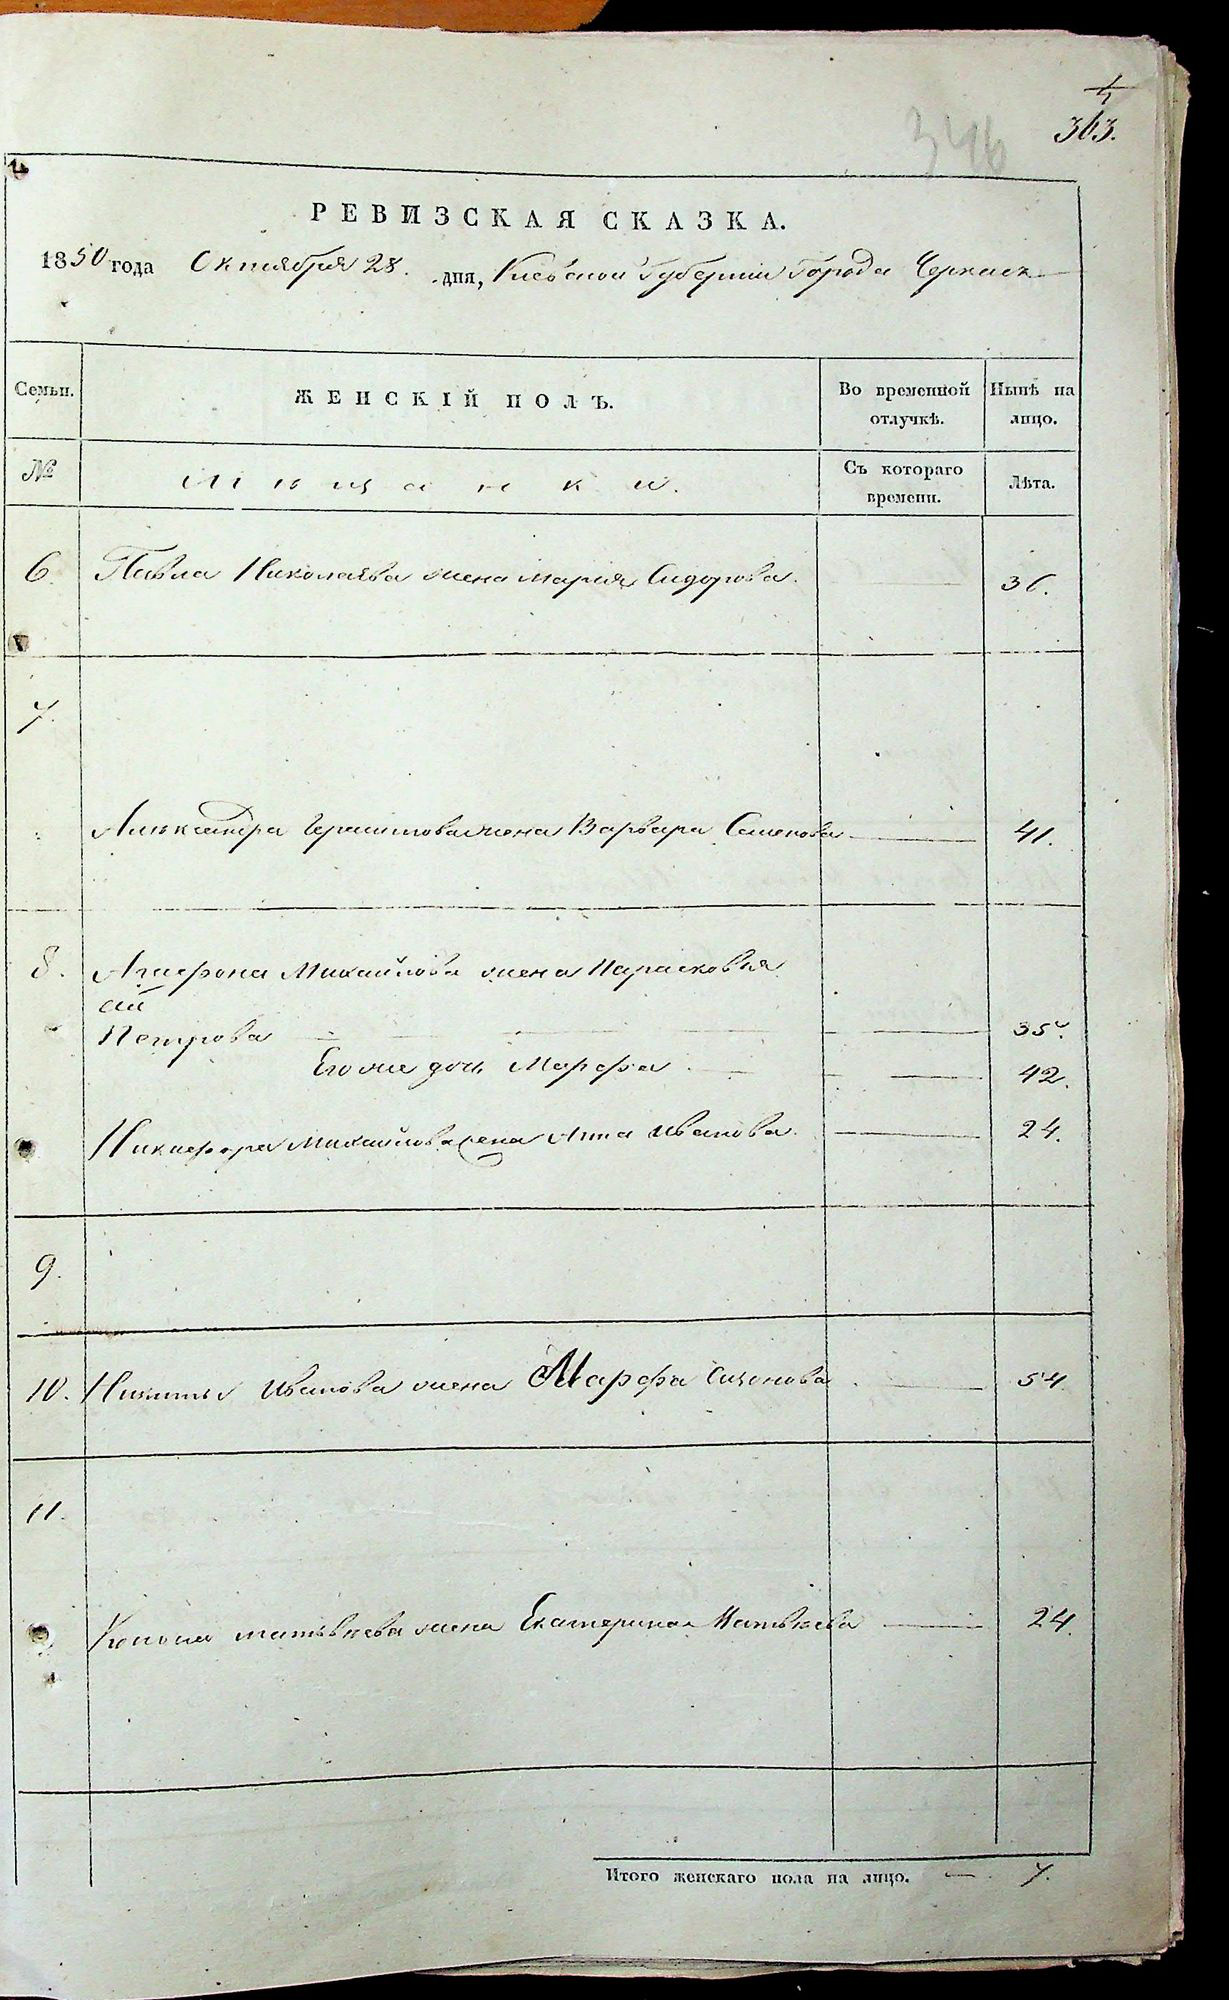 4
363.
346
РЕВИЗСКАЯ СКАЗКА.
1850 года Октября 28. дня, Киевской Губернии Города Черкас
Семьи. ЖЕНСКІЙ ПОЛЪ. Во временной отлучкѣ. Нынѣ на лицо.
№ Мещанки. Съ котораго времени. Лѣта.
6. Павла Николаева жена Мария Сидорова. 36.
7.
Александра жена Варвара Семенова 41.
8. Михайлова жена Парасковья
Петрова 35.
Его же дочь Марфа 42.
Никифора Михайлова жена Анна Иванова. 24.
9.
10. Никиты Иванова жена Марфа Симонова 54.
11.
Матвѣева жена Екатерина Матвѣева 24.
Итого женскаго пола на лицо. 7.